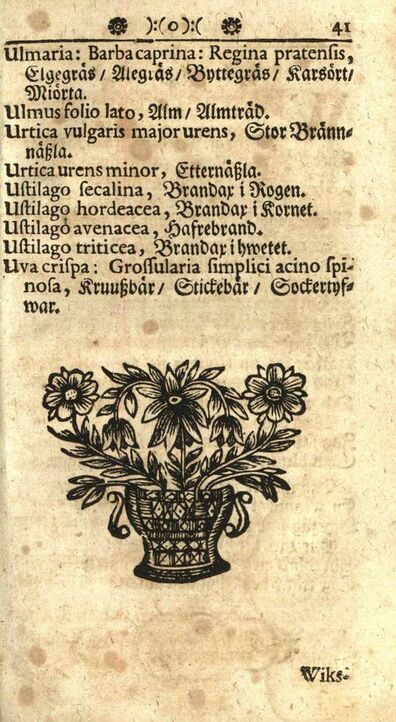 ):( o ):( 41
Ulmaria: Barba caprina: Regina pratensis,
Elgegräs / Alegräs / Byttegräs / Karsört /
Miörta.
Ulmus folio lato, Alm / Almträd.
Urtica vulgaris major urens, Stor Bränn-
näßla.
Urtica urens minor, Etternäßla.
Ustilago secalina, Brandax i Rogen.
Ustilago hordeacea, Brandax i Kornet.
Ustilago avenacea, Hafrebrand.
Ustilago triticea, Brandax i hwetet.
Uva crispa: Grossularia simplici acino spi-
nosa, Kruußbär / Stickebär / Sockertyf-
war.
Wiks-